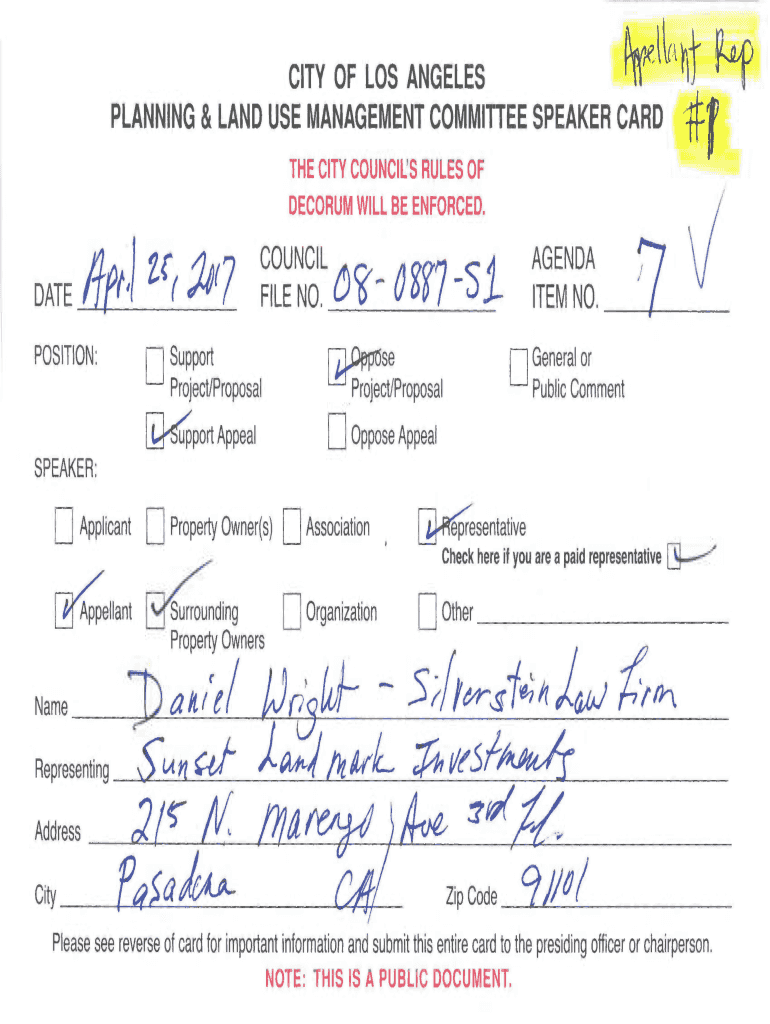 Appellant Rep
#1
CITY OF LOS ANGELES
PLANNING & LAND USE MANAGEMENT COMMITTEE SPEAKER CARD
THE CITY COUNCIL'S RULES OF
DECORUM WILL BE ENFORCED.
DATE April 25, 2017 COUNCIL FILE NO. 08-0887-S1 AGENDA ITEM NO. 7
POSITION: Support Project/Proposal Oppose Project/Proposal General or Public Comment
Support Appeal Oppose Appeal
SPEAKER:
Applicant Property Owner(s) Association Representative
Check here if you are a paid representative
Appellant Surrounding Property Owners Organization Other
Name Daniel Wright - Silverstein Law Firm
Representing Sunset Landmark Investments
Address 215 N. Marengo Ave 3rd Fl.
City Pasadena CA Zip Code 91101
Please see reverse of card for important information and submit this entire card to the presiding officer or chairperson.
NOTE: THIS IS A PUBLIC DOCUMENT.